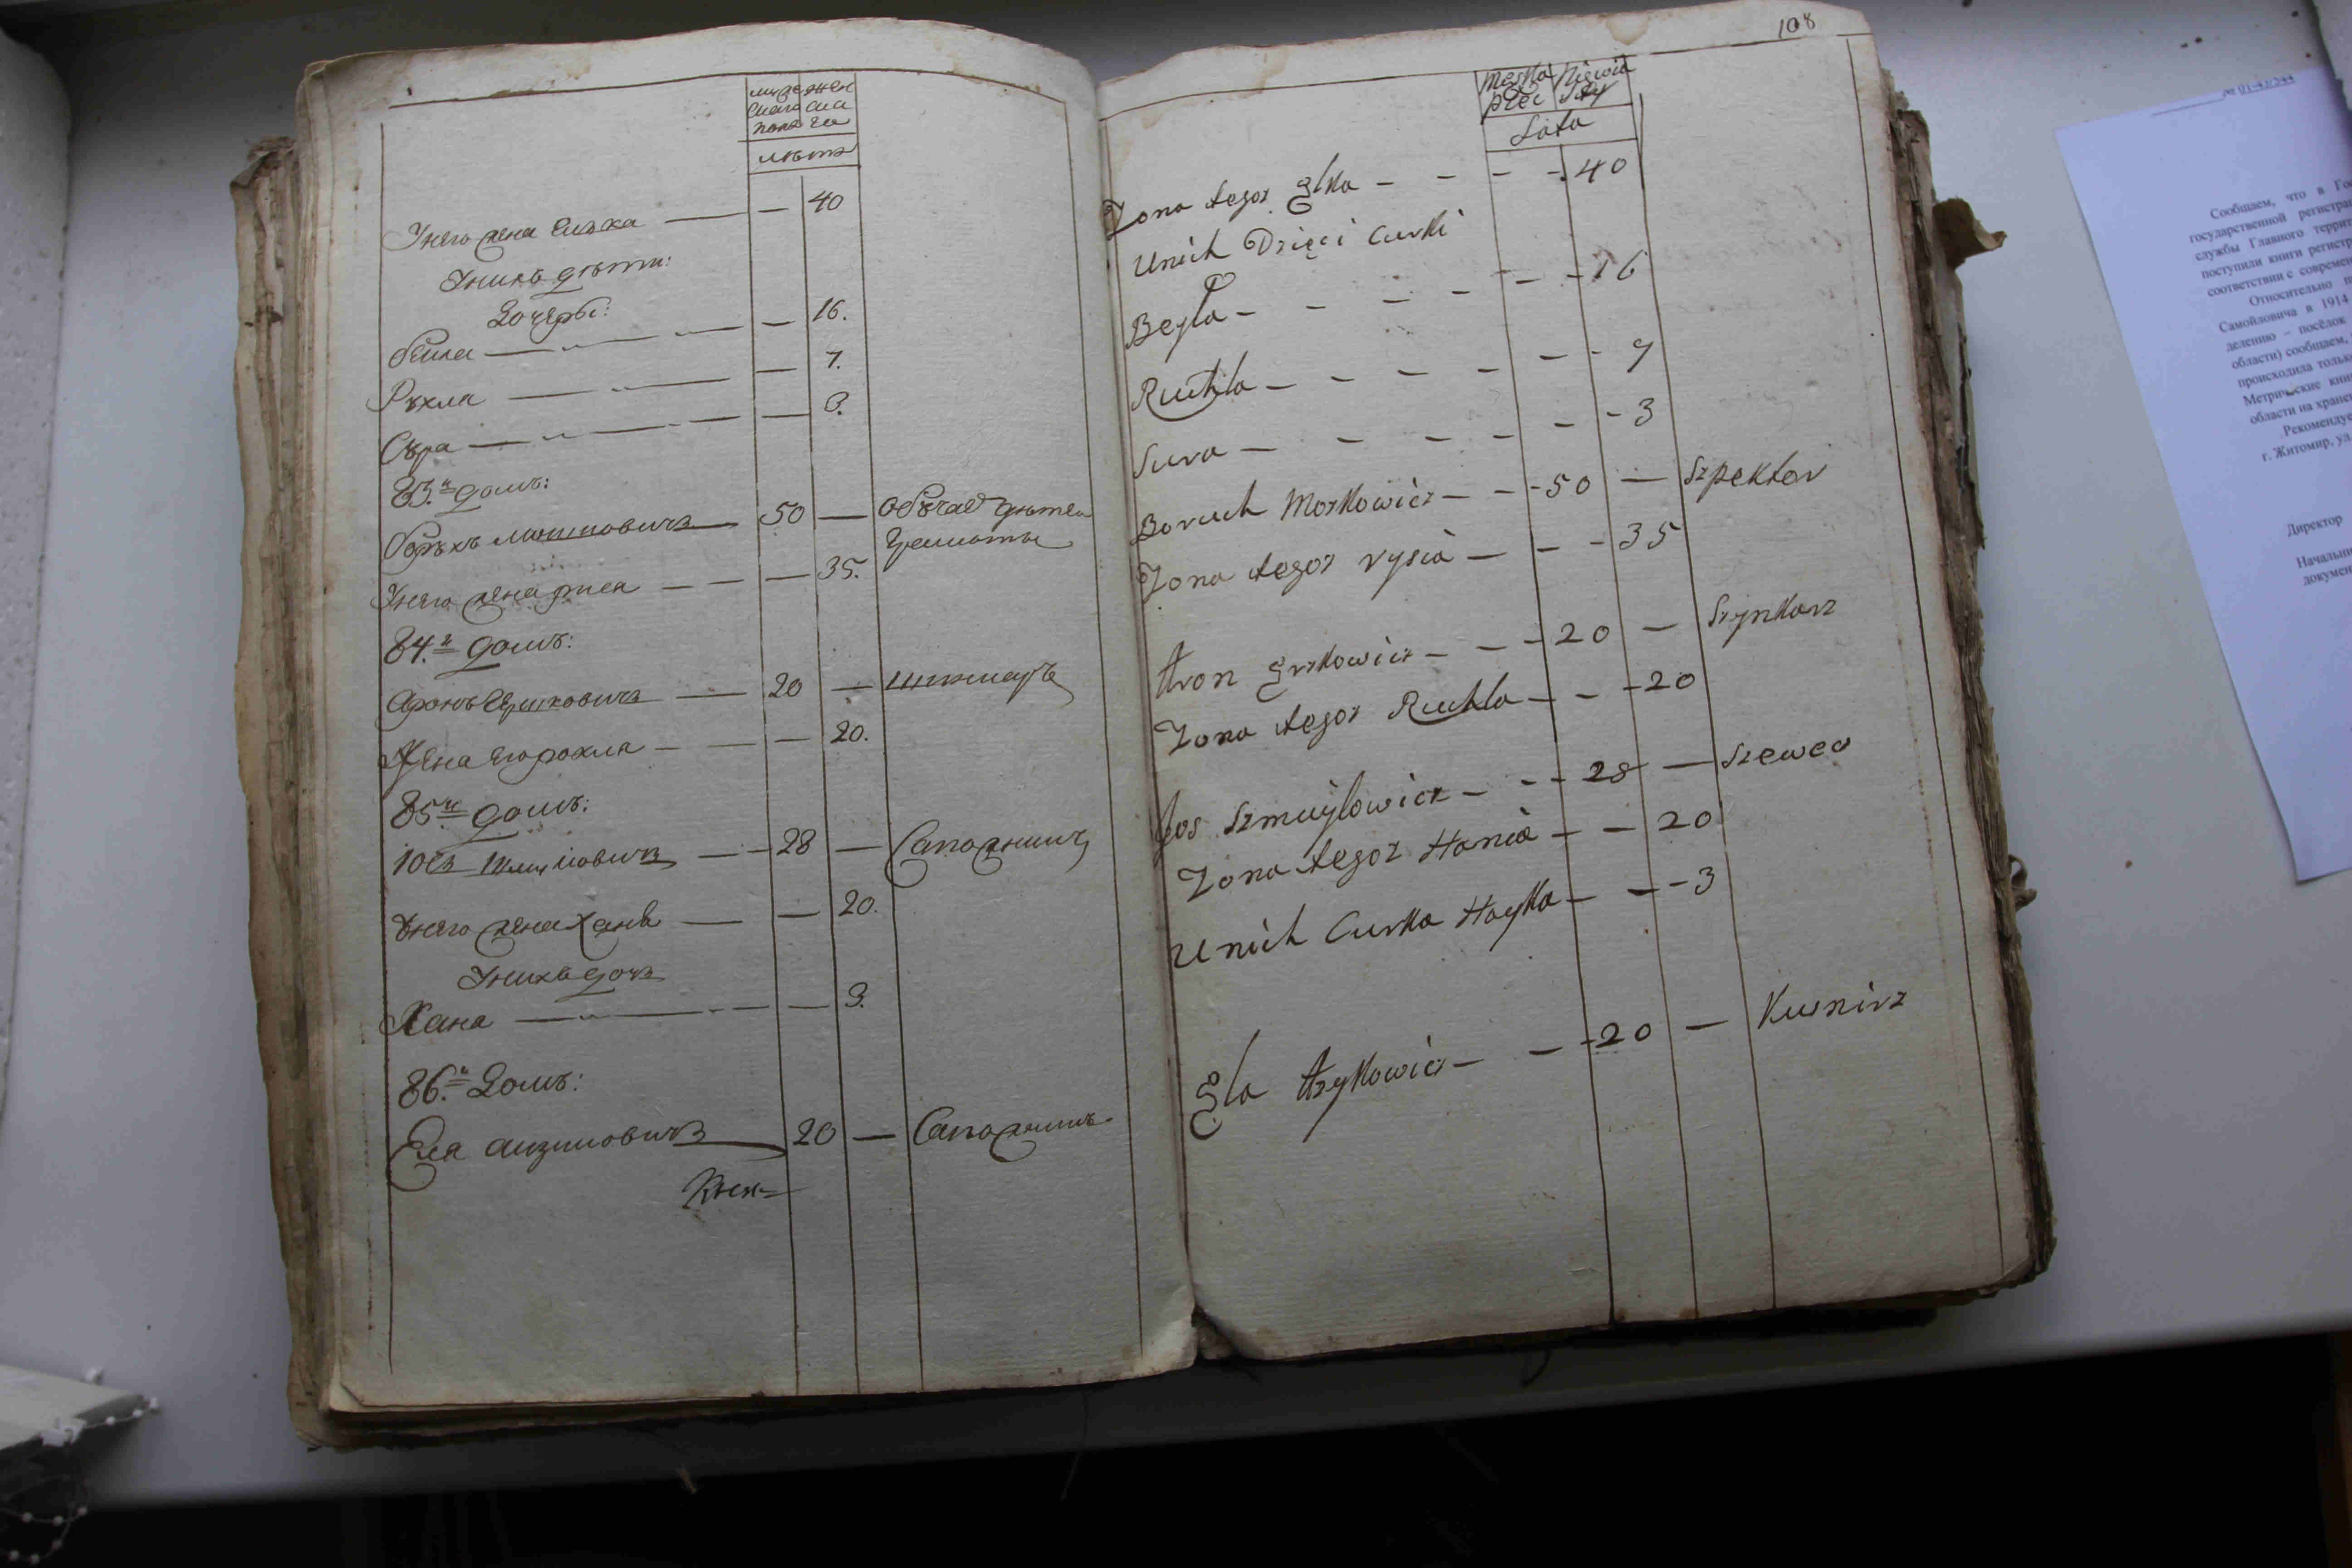 мужеска женска
пола
лѣта
У него жена Елька — — 40
У нихъ дѣти:
Дочери:
Бейла — — 16.
Рухла — — 7.
Сура — — 3.
83.й домъ:
Борухъ Мошковичъ — 50 — Обучає дѣтей
грамоты
У него жена Риса — — 35.
84.й домъ:
Аронъ Ершковичъ — 20 — шинкаръ
Жена его Рохля — — 20.
85й домъ:
Іось Шмуйловичъ — 28 — Сапожникъ
У него жена Ханя — — 20.
У нихъ дочь
Хана — — 3.
86.й Домъ:
Еля Айзиковичъ 20 — Сапожникъ
108
Męska płeć Niewiasty
Lata
Zona tegoż Elka — — — — 40
U nich Dzięci Curki
Beyla — — — — — — 16
Ruchla — — — — — — 7
Sura — — — — — — 3
Boruch Moszkowicz — — 50 — Szpektor
Zona tegoż Rysia — — — 35
Aron Erszkowicz — — — 20 — Szynkarz
Zona tegoż Ruchla — — — 20
Jos Szmuylowicz — — — 28 — Szewec
Zona tegoż Hania — — 20
U nich Curka Hayka — — — 3
Ela Azykowicz — — — 20 — Kusnirz
Сообщаем, что в
государственной регистра
службы Главного террит
поступили книги регистр
соответствии с современ
Относительно
Самойловича в 1914
делению – посёлок
области) сообщаем,
происходила только
Метрические кни
области на хране
Рекоменду
г. Житомир, ул
Директор
Начальн
докумен